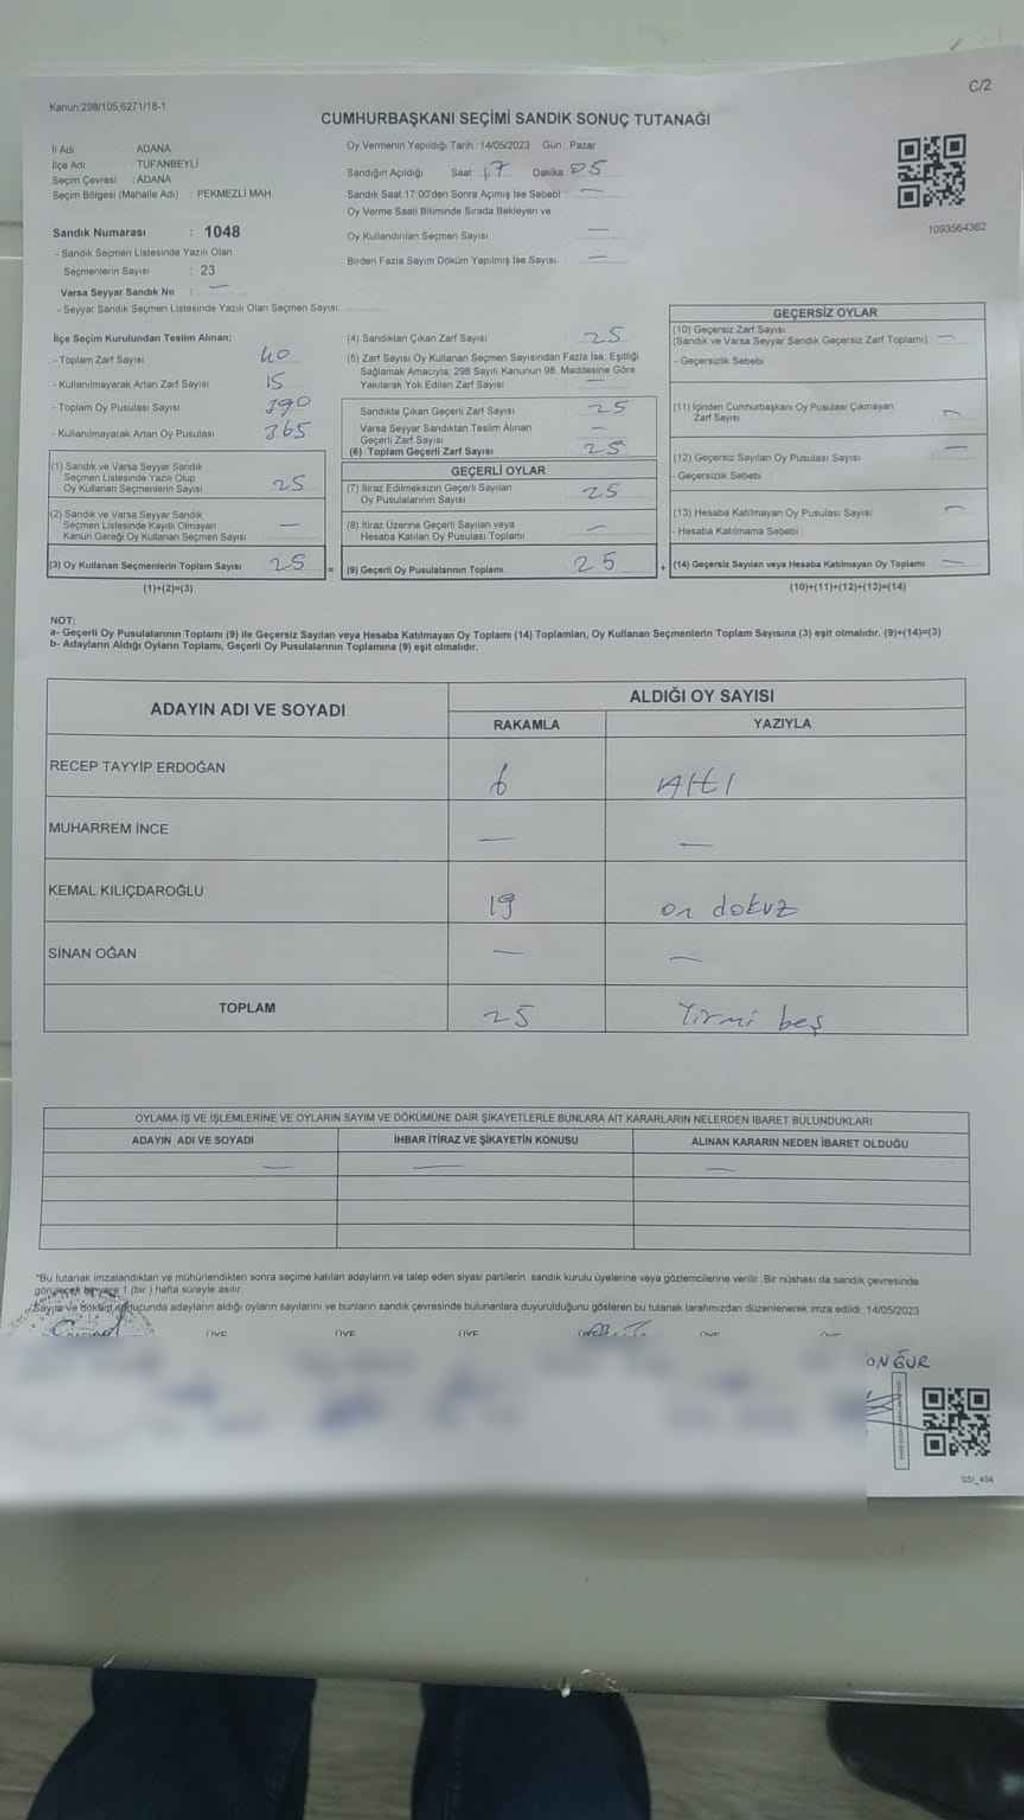 C/2
Kanun:298/105,6271/18-1
CUMHURBAŞKANI SEÇİMİ SANDIK SONUÇ TUTANAĞI
İl Adı : ADANA
İlçe Adı : TUFANBEYLİ
Seçim Çevresi : ADANA
Seçim Bölgesi (Mahalle Adı) : PEKMEZLİ MAH.
Sandık Numarası : 1048
- Sandık Seçmen Listesinde Yazılı Olan
Seçmenlerin Sayısı : 23
Varsa Seyyar Sandık No : —
- Seyyar Sandık Seçmen Listesinde Yazılı Olan Seçmen Sayısı:
Oy Vermenin Yapıldığı Tarih : 14/05/2023 Gün : Pazar
Sandığın Açıldığı Saat : 17 Dakika : 05
Sandık Saat 17:00'den Sonra Açımış İse Sebebi : —
Oy Verme Saati Bitiminde Sırada Bekleyen ve
Oy Kullandırılan Seçmen Sayısı —
Birden Fazla Sayım Döküm Yapılmış İse Sayısı —
1093564362
İlçe Seçim Kurulundan Teslim Alınan:
- Toplam Zarf Sayısı 40
- Kullanılmayarak Artan Zarf Sayısı 15
- Toplam Oy Pusulası Sayısı 390
- Kullanılmayarak Artan Oy Pusulası 365
(1) Sandık ve Varsa Seyyar Sandık
Seçmen Listesinde Yazılı Olup
Oy Kullanan Seçmenlerin Sayısı 25
(2) Sandık ve Varsa Seyyar Sandık
Seçmen Listesinde Kayıtlı Olmayan
Kanun Gereği Oy Kullanan Seçmen Sayısı —
(3) Oy Kullanan Seçmenlerin Toplam Sayısı 25
(1)+(2)=(3)
(4) Sandıktan Çıkan Zarf Sayısı 25
(5) Zarf Sayısı Oy Kullanan Seçmen Sayısından Fazla İse, Eşitliği
Sağlamak Amacıyla; 298 Sayılı Kanunun 98. Maddesine Göre
Yakılarak Yok Edilen Zarf Sayısı —
Sandıkta Çıkan Geçerli Zarf Sayısı 25
Varsa Seyyar Sandıktan Teslim Alınan
Geçerli Zarf Sayısı —
(6) Toplam Geçerli Zarf Sayısı 25
GEÇERLİ OYLAR
(7) İtiraz Edilmeksizin Geçerli Sayılan
Oy Pusulalarının Sayısı 25
(8) İtiraz Üzerine Geçerli Sayılan veya
Hesaba Katılan Oy Pusulası Toplamı —
= (9) Geçerli Oy Pusulalarının Toplamı 25
GEÇERSİZ OYLAR
(10) Geçersiz Zarf Sayısı
(Sandık ve Varsa Seyyar Sandık Geçersiz Zarf Toplamı) —
- Geçersizlik Sebebi
(11) İçinden Cumhurbaşkanı Oy Pusulası Çıkmayan
Zarf Sayısı —
(12) Geçersiz Sayılan Oy Pusulası Sayısı —
- Geçersizlik Sebebi
(13) Hesaba Katılmayan Oy Pusulası Sayısı —
- Hesaba Katılmama Sebebi :
+ (14) Geçersiz Sayılan veya Hesaba Katılmayan Oy Toplamı —
(10)+(11)+(12)+(13)=(14)
NOT:
a- Geçerli Oy Pusulalarının Toplamı (9) ile Geçersiz Sayılan veya Hesaba Katılmayan Oy Toplamı (14) Toplamları, Oy Kullanan Seçmenlerin Toplam Sayısına (3) eşit olmalıdır. (9)+(14)=(3)
b- Adayların Aldığı Oyların Toplamı, Geçerli Oy Pusulalarının Toplamına (9) eşit olmalıdır.
ADAYIN ADI VE SOYADI
ALDIĞI OY SAYISI
RAKAMLA YAZIYLA
RECEP TAYYİP ERDOĞAN 6 Altı
MUHARREM İNCE — —
KEMAL KILIÇDAROĞLU 19 on dokuz
SİNAN OĞAN — —
TOPLAM 25 Yirmi beş
OYLAMA İŞ VE İŞLEMLERİNE VE OYLARIN SAYIM VE DÖKÜMÜNE DAİR ŞİKAYETLERLE BUNLARA AİT KARARLARIN NELERDEN İBARET BULUNDUKLARI
ADAYIN ADI VE SOYADI İHBAR İTİRAZ VE ŞİKAYETİN KONUSU ALINAN KARARIN NEDEN İBARET OLDUĞU
— — —
"Bu tutanak imzalandıktan ve mühürlendikten sonra seçime katılan adayların ve talep eden siyasi partilerin sandık kurulu üyelerine veya gözlemcilerine verilir. Bir nüshası da sandık çevresinde
görülecek bir yere 1 (bir) hafta süreyle asılır.
Sayım ve döküm sonucunda adayların aldığı oyların sayılarını ve bunların sandık çevresinde bulunanlara duyurulduğunu gösteren bu tutanak tarafımızdan düzenlenerek imza edildi. 14/05/2023
ÜYE ÜYE ÜYE